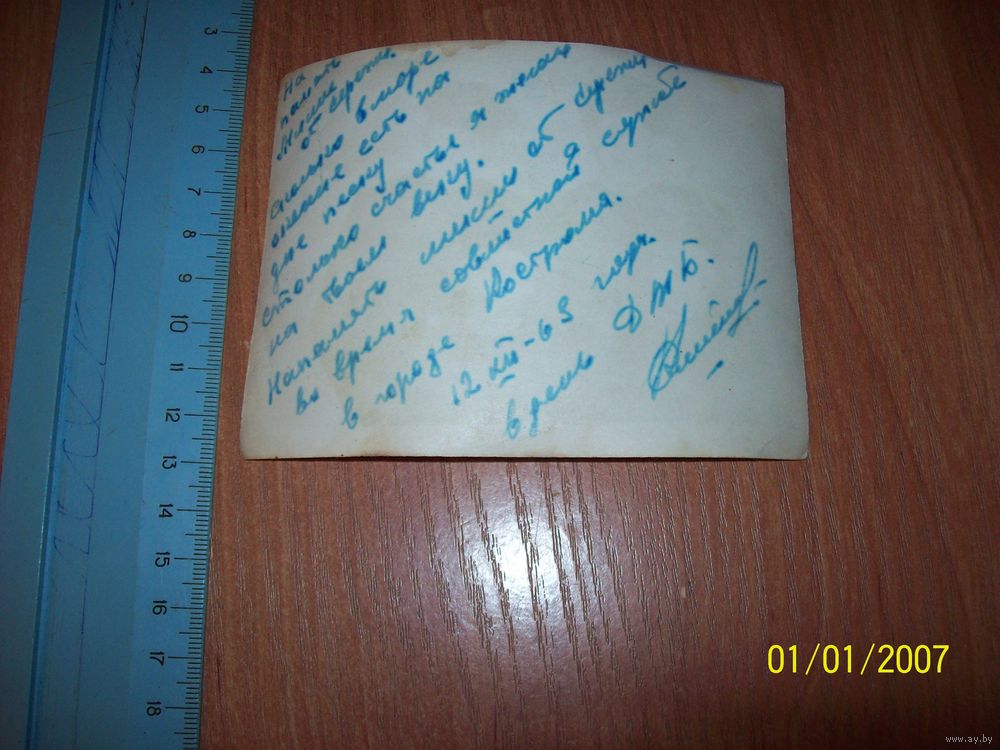 На
память
Мише
от Сережи.
сколько в море
есть на
дне песку
столько счастья я желаю
на твоем веку.
Напамять Мише от Сережи
во время совместной службе
в городе Кострома.
12 XII-69 год.
в день ДМБ.
3
4
5
6
7
8
9
10
11
12
13
14
15
16
17
18
01/01/2007
www.ay.by